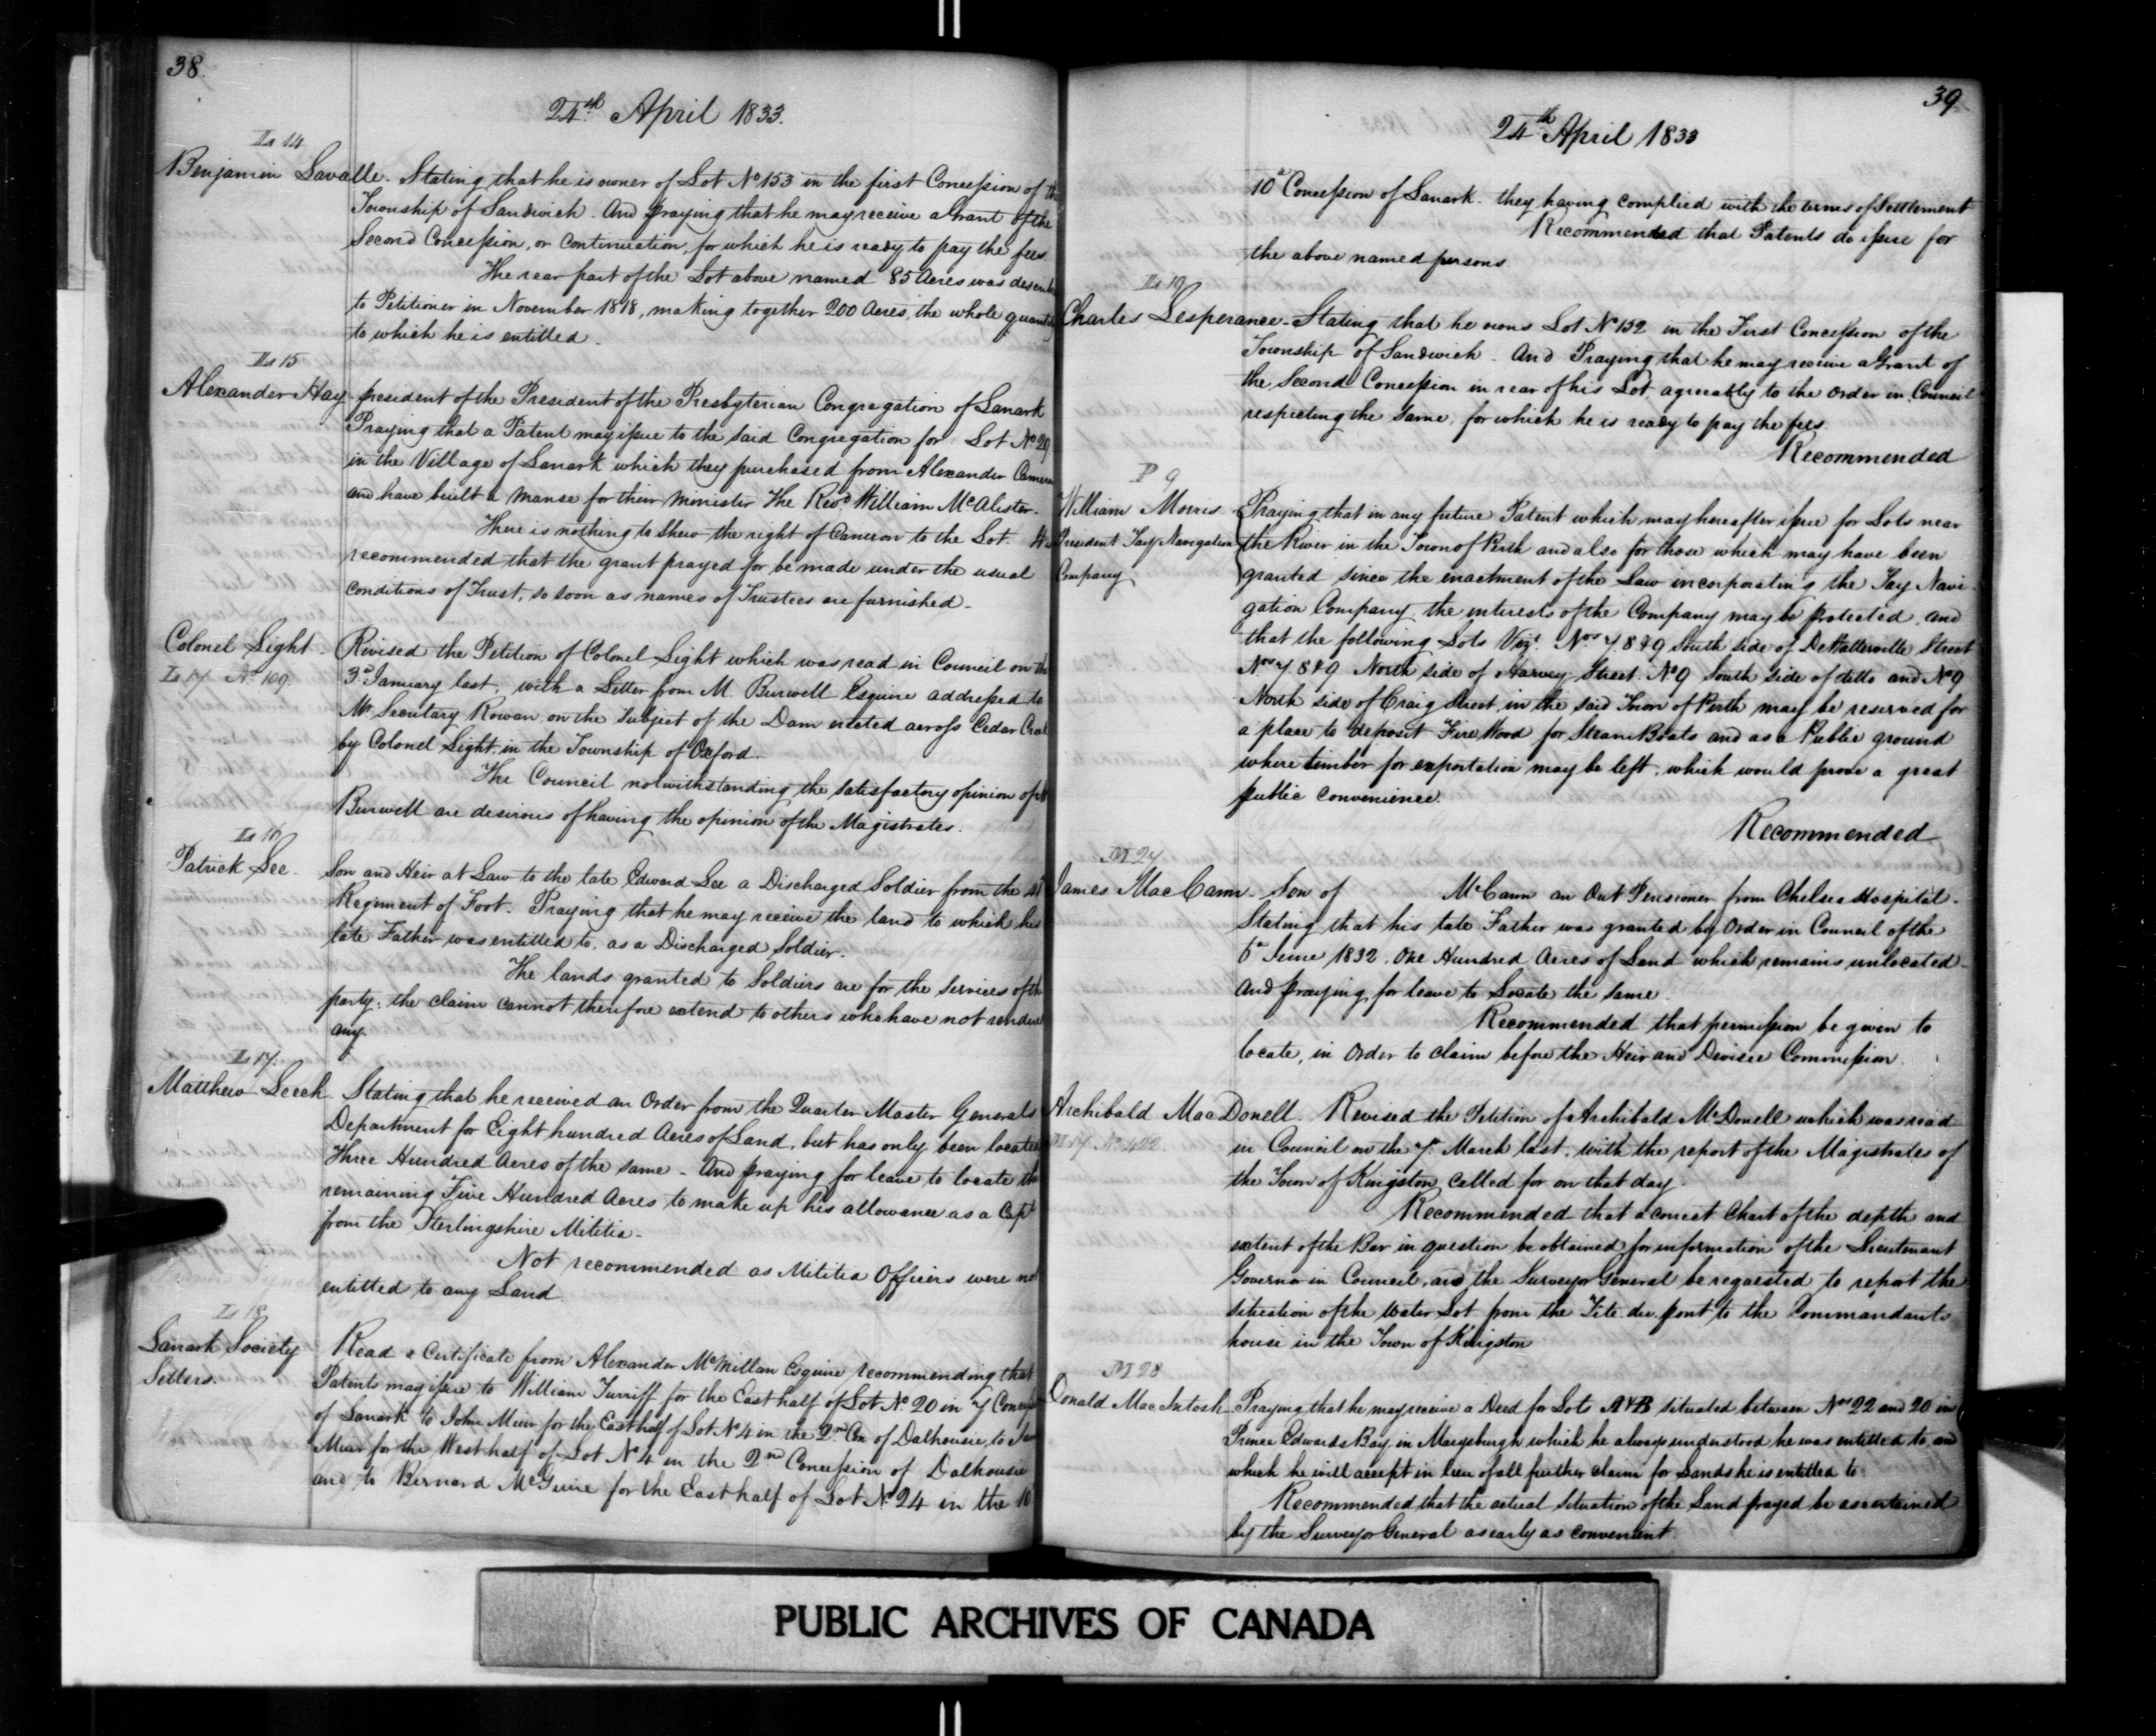 38.
24th April 1833.
L 14
Benjamin Lavalle. Stating that he is owner of Lot No 153 in the first Concession of the
Township of Sandwich. And praying that he may receive a Grant of the
Second Concession, or Continuation, for which he is ready to pay the fees.
The rear part of the Lot above named 85 Acres was
to Petitioner in November 1818, making together 200 Acres, the whole quantity
to which he is entitled.
L 15
Alexander Hay president of the President of the Presbyterian Congregation of Lanark
Praying that a Patent may issue to the said Congregation for Lot No 29
in the Village of Lanark which they purchased from Alexander Cameron
and have built a manse for their minister The Revd William McAlister.
There is nothing to Shew the right of Cameron to the Lot.
recommended that the grant prayed for be made under the usual
conditions of Trust, so soon as names of Trustees are furnished.
Colonel Light. Revised the Petition of Colonel Light which was read in Council on the
L 17 No 109
3d January last, with a Letter from M. Burwell Esquire addressed to
Mr Secretary Rowan, on the subject of the Dam erected across Cedar Creek
by Colonel Light, in the Township of Oxford.
The Council notwithstanding the satisfactory opinion of
Burwell are desirous of having the opinion of the Magistrates.
L 16
Patrick Lee. Son and Heir at Law to the late Edward Lee a Discharged Soldier from the
Regiment of Foot. Praying that he may receive the land to which his
late Father was entitled to, as a Discharged Soldier.
The lands granted to Soldiers are for the services of the
party; the claim cannot therefore extend to others who have not rendered
any.
L 17.
Matthew Leech Stating that he received an Order from the Quarter Master Generals
Department for Eight hundred Acres of Land, but has only been located
Three Hundred Acres of the same - And praying for leave to locate the
remaining Five Hundred Acres to make up his allowance as a Capt
from the Sterlingshire Militia.
Not recommended as Militia Officers were not
entitled to any Land.
L 18
Lanark Society Settlers.
Read a Certificate from Alexander McMillan Esquire recommending that
Patents may issue to William Turriff, for the East half of Lot No 20 in 7 Concession
of Lanark to John Muir for the East half of Lot No 4 in the 2nd Con of Dalhousie, to
Muir for the West half of Lot No 4 in the 2nd Concession of Dalhousie
and to Bernard McGuire for the East half of Lot No 24 in the 10
39.
24th April 1833
10th Concession of Lanark. they having complied with the terms of Settlement
Recommended that Patents do issue for
the above named persons.
L 19
Charles Lesperance - Stating that he owns Lot No 152 in the First Concession of the
Township of Sandwich. And Praying that he may receive a Grant of
the Second Concession in rear of his Lot, agreeably to the Order in Council
respecting the same, for which he is ready to pay the fees.
Recommended
P 9
William Morris Praying that in any future Patent which may hereafter issue for Lots near
President Tay Navigation the River in the Town of Perth and also for those which may have been
Company granted since the enactment of the Law incorporating the Tay Navi
gation Company the interests of the Company may be protected, and
that the following Lots Vizt Nos 7. 8 & 9 South side of DeWatterville Street
Nos 7. 8 & 9 North side of Harvey Street. No 9 South side of ditto and No 9
North side of Craig Street, in the said Town of Perth may be reserved for
a place to deposit Fire Wood for Steam Boats and as a Public ground
where timber for exportation may be left, which would prove a great
public convenience.
Recommended
M 27
James MacCann - Son of McCann an Out Pensioner from Chelsea Hospital.
Stating that his late Father was granted by Order in Council of the
6th June 1832, One Hundred Acres of Land which remains unlocated.
And praying for leave to Locate the same.
Recommended that permission be given to
locate, in order to claim before the Heir and Devisee Commission.
Archibald MacDonell Revised the Petition of Archibald McDonell which was read
M 17 No 422
in Council on the 7th March last, with the report of the Magistrates of
the Town of Kingston called for on that day.
Recommended that a correct Chart of the depth and
extent of the Bar in question be obtained for information of the Lieutenant
Governor in Council, and the Surveyor General be requested to report the
situation of the water Lot from the Tête du pont to the Commandants
house in the Town of Kingston
M 28
Donald MacIntosh Praying that he may receive a Deed for Lots A & B situated between Nos 22 and 20 in
Prince Edwards Bay in Marysburgh which he always understood he was entitled to, and
which he will accept in lieu of all further claim for Lands he is entitled to.
Recommended that the actual situation of the Land prayed be ascertained
by the Surveyor General as early as convenient.
PUBLIC ARCHIVES OF CANADA